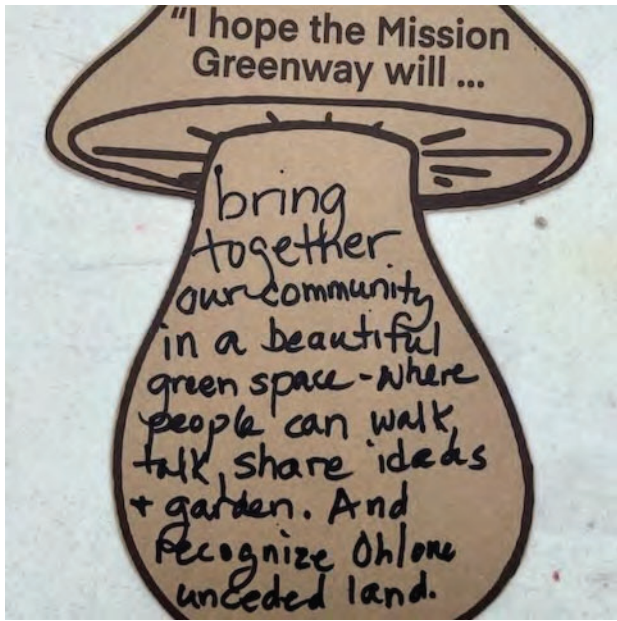 "I hope the Mission
Greenway will ...
bring
together
our community
in a beautiful
green space - where
people can walk,
talk, share ideas
+ garden. And
recognize Ohlone
unceded land.